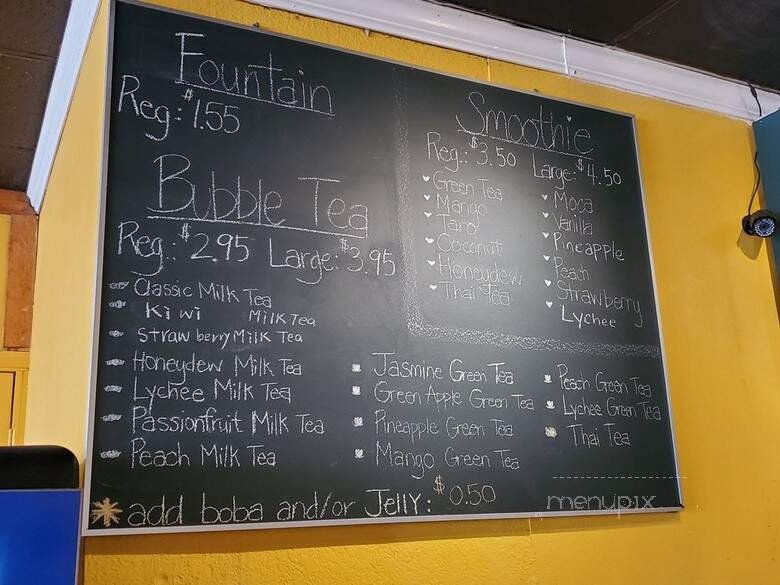 Fountain
Reg: $1.55
Bubble Tea
Reg: $2.95 Large: $3.95
Classic Milk Tea
Kiwi Milk Tea
Strawberry Milk Tea
Honeydew Milk Tea
Lychee Milk Tea
Passionfruit Milk Tea
Peach Milk Tea
Jasmine Green Tea
Green Apple Green Tea
Pineapple Green Tea
Mango Green Tea
Peach Green Tea
Lychee Green Tea
Thai Tea
Smoothie
Reg.: $3.50 Large: $4.50
Green Tea
Mango
Taro
Coconut
Honeydew
Thai Tea
Moca
Vanilla
Pineapple
Peach
Strawberry
Lychee
*add boba and/or JELLY: $0.50
menupix